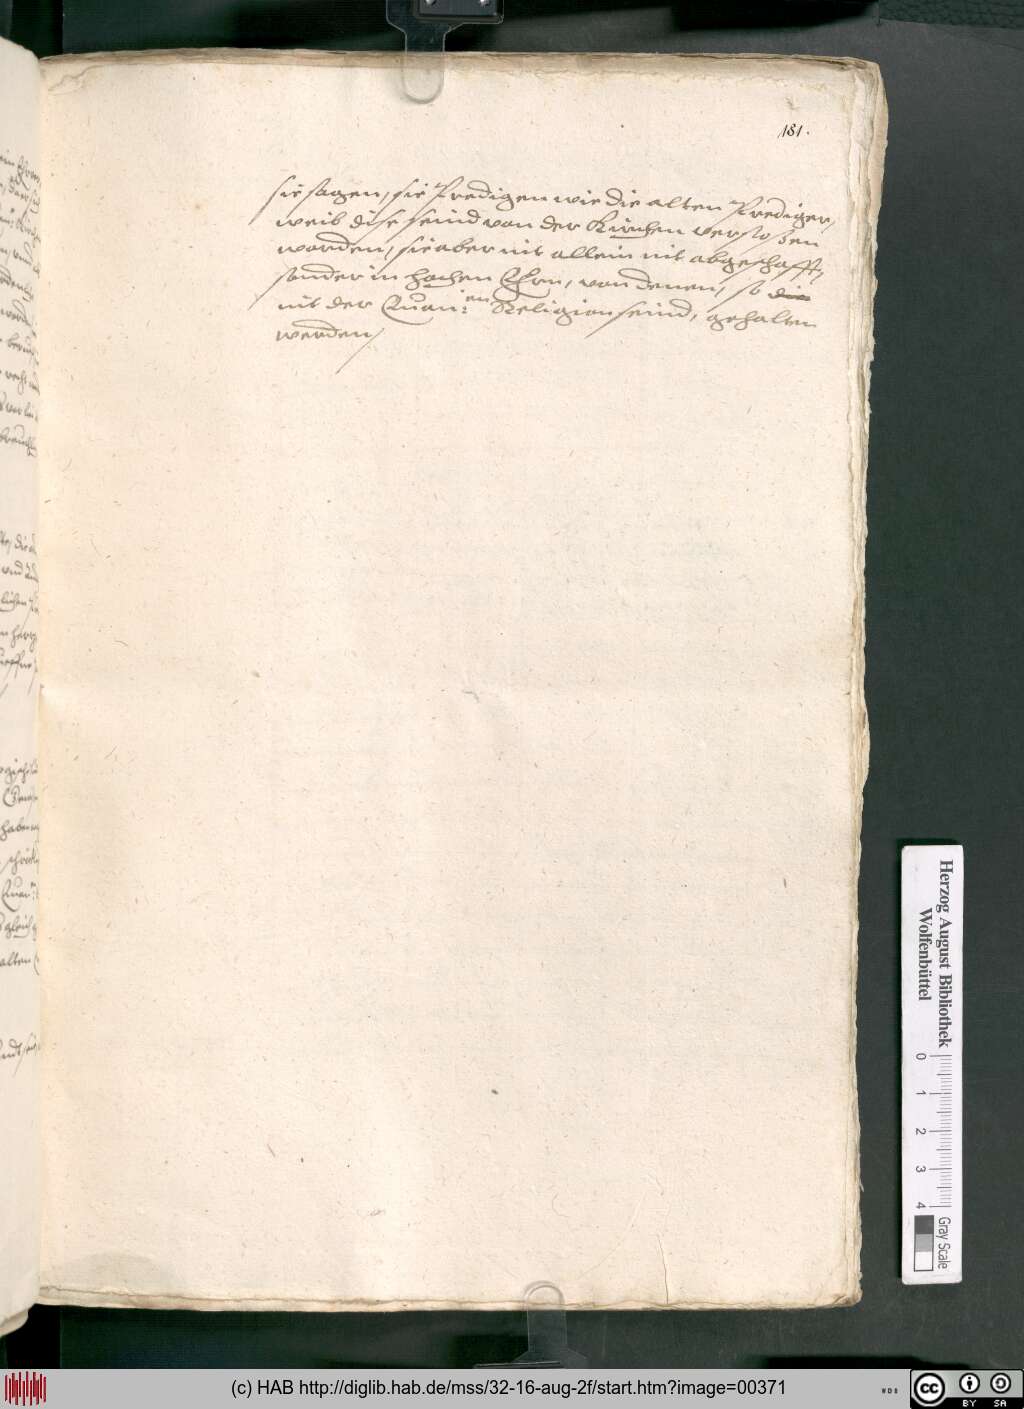 181.
sie sagen, sie Predigen wie die alten Prediger,
weib dise seind von der Kirchen verstoßen
worden, sie aber nit allein nit abgeschafft,
sonder in hochen Ehrn, von denen, so die
mit der Euan: en Religion seind, gehalten
werden,
Herzog August Bibliothek
Wolfenbüttel
0 1 2 3 4
Gray Scale
(c) HAB http://diglib.hab.de/mss/32-16-aug-2f/start.htm?image=00371
WDB
cc BY SA